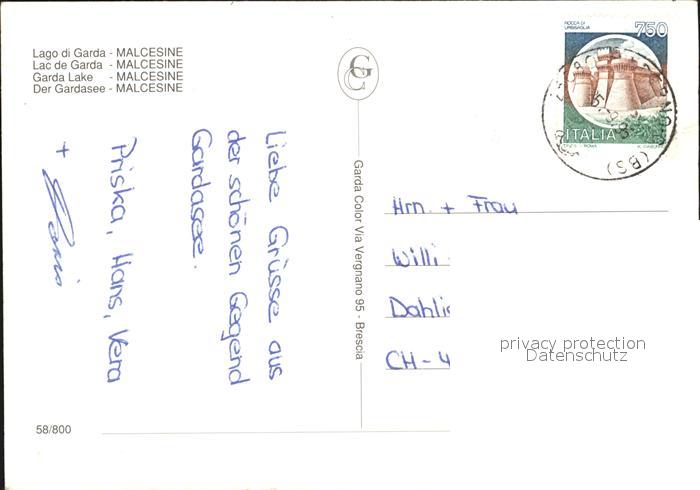 Lago di Garda - MALCESINE
Lac de Garda - MALCESINE
Garda Lake - MALCESINE
Der Gardasee - MALCESINE
GC
ROCCA DI URBISAGLIA
750
ITALIA
ROMA
(BS)
Liebe Grüsse aus
der schönen Gegend
Gardasee.
Priska, Hans, Vera
+
Garda Color Via Vergnano 95 - Brescia
Hrn. + Frau
Willi
Dahli
CH - 4
privacy protection
Datenschutz
58/800